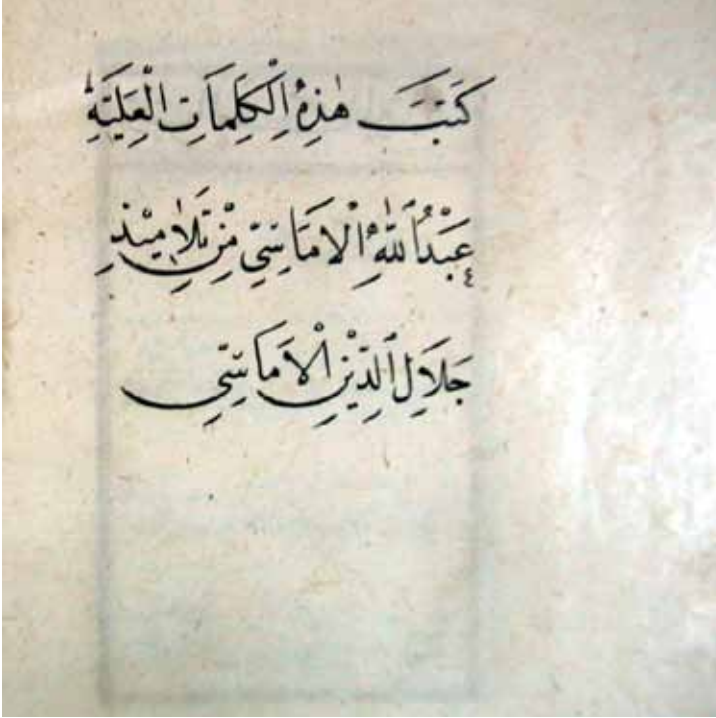 كَتَبَ هٰذِهِ الْكَلِمَاتِ الْعَلِيَّةِ
عَبْدُ اللهِ الْامَاسِيّ مِنْ تَلَامِيْذِ
جَلَالِ الدِّيْنِ الْاَمَاسِيّ